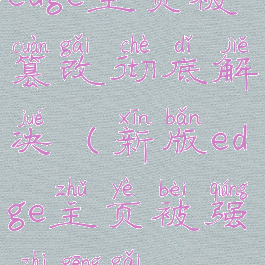 edge主页被
cuàn gǎi chè dǐ jiě
篡改彻底解
jué xīn bǎn
决（新版ed
zhǔ yè bèi qiáng
ge主页被强
zhì gēng gǎi